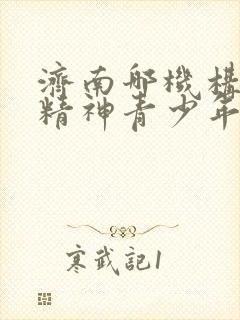 濟南郵機構
精神青少年
寒武記1